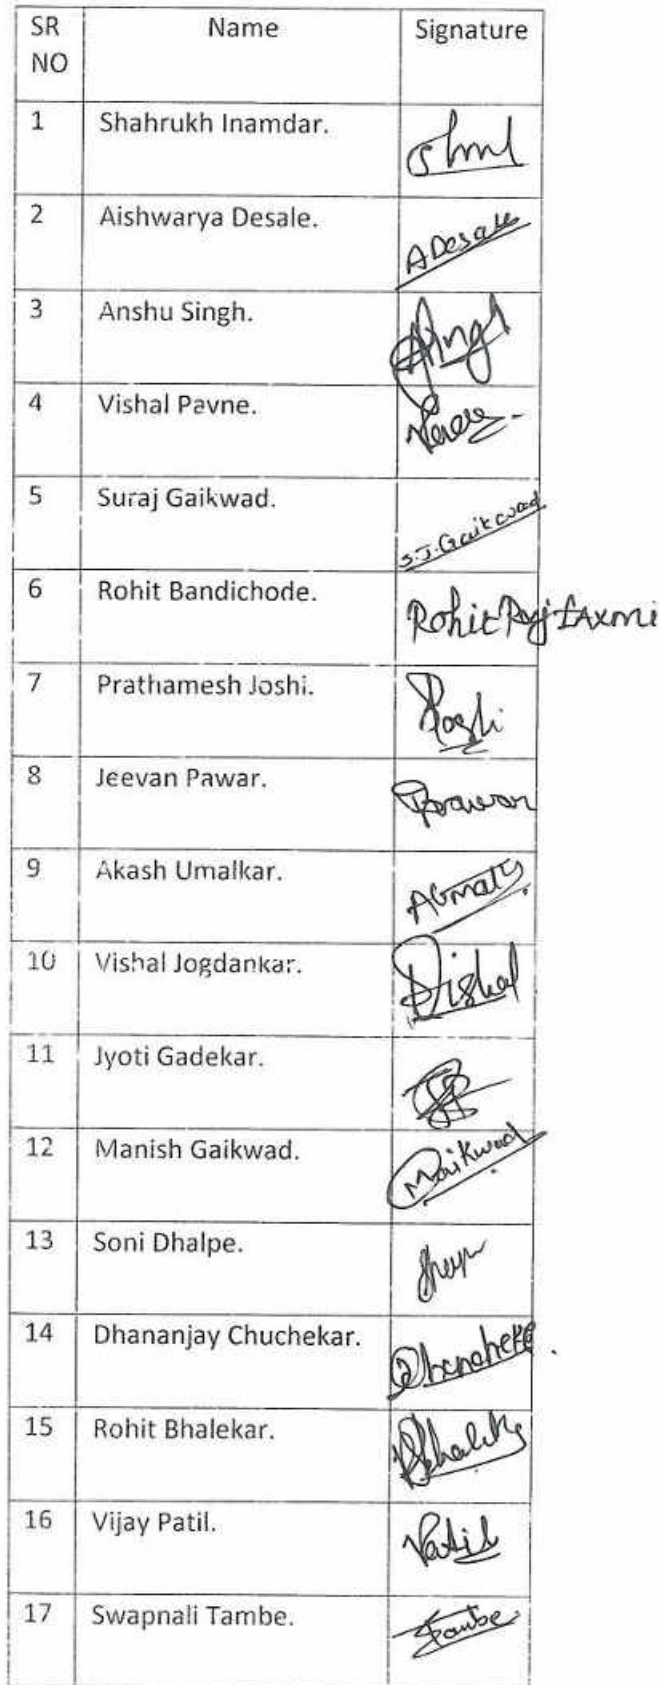 SR NO Name Signature
1 Shahrukh Inamdar.
2 Aishwarya Desale. ADesale
3 Anshu Singh.
4 Vishal Pavne.
5 Suraj Gaikwad. S.J.Gaikwad
6 Rohit Bandichode. Rohit Raj Laxmi
7 Prathamesh Joshi.
8 Jeevan Pawar.
9 Akash Umalkar.
10 Vishal Jogdankar. Vishal
11 Jyoti Gadekar.
12 Manish Gaikwad. MGaikwad
13 Soni Dhalpe.
14 Dhananjay Chuchekar.
15 Rohit Bhalekar.
16 Vijay Patil. VPatil
17 Swapnali Tambe. Tambe